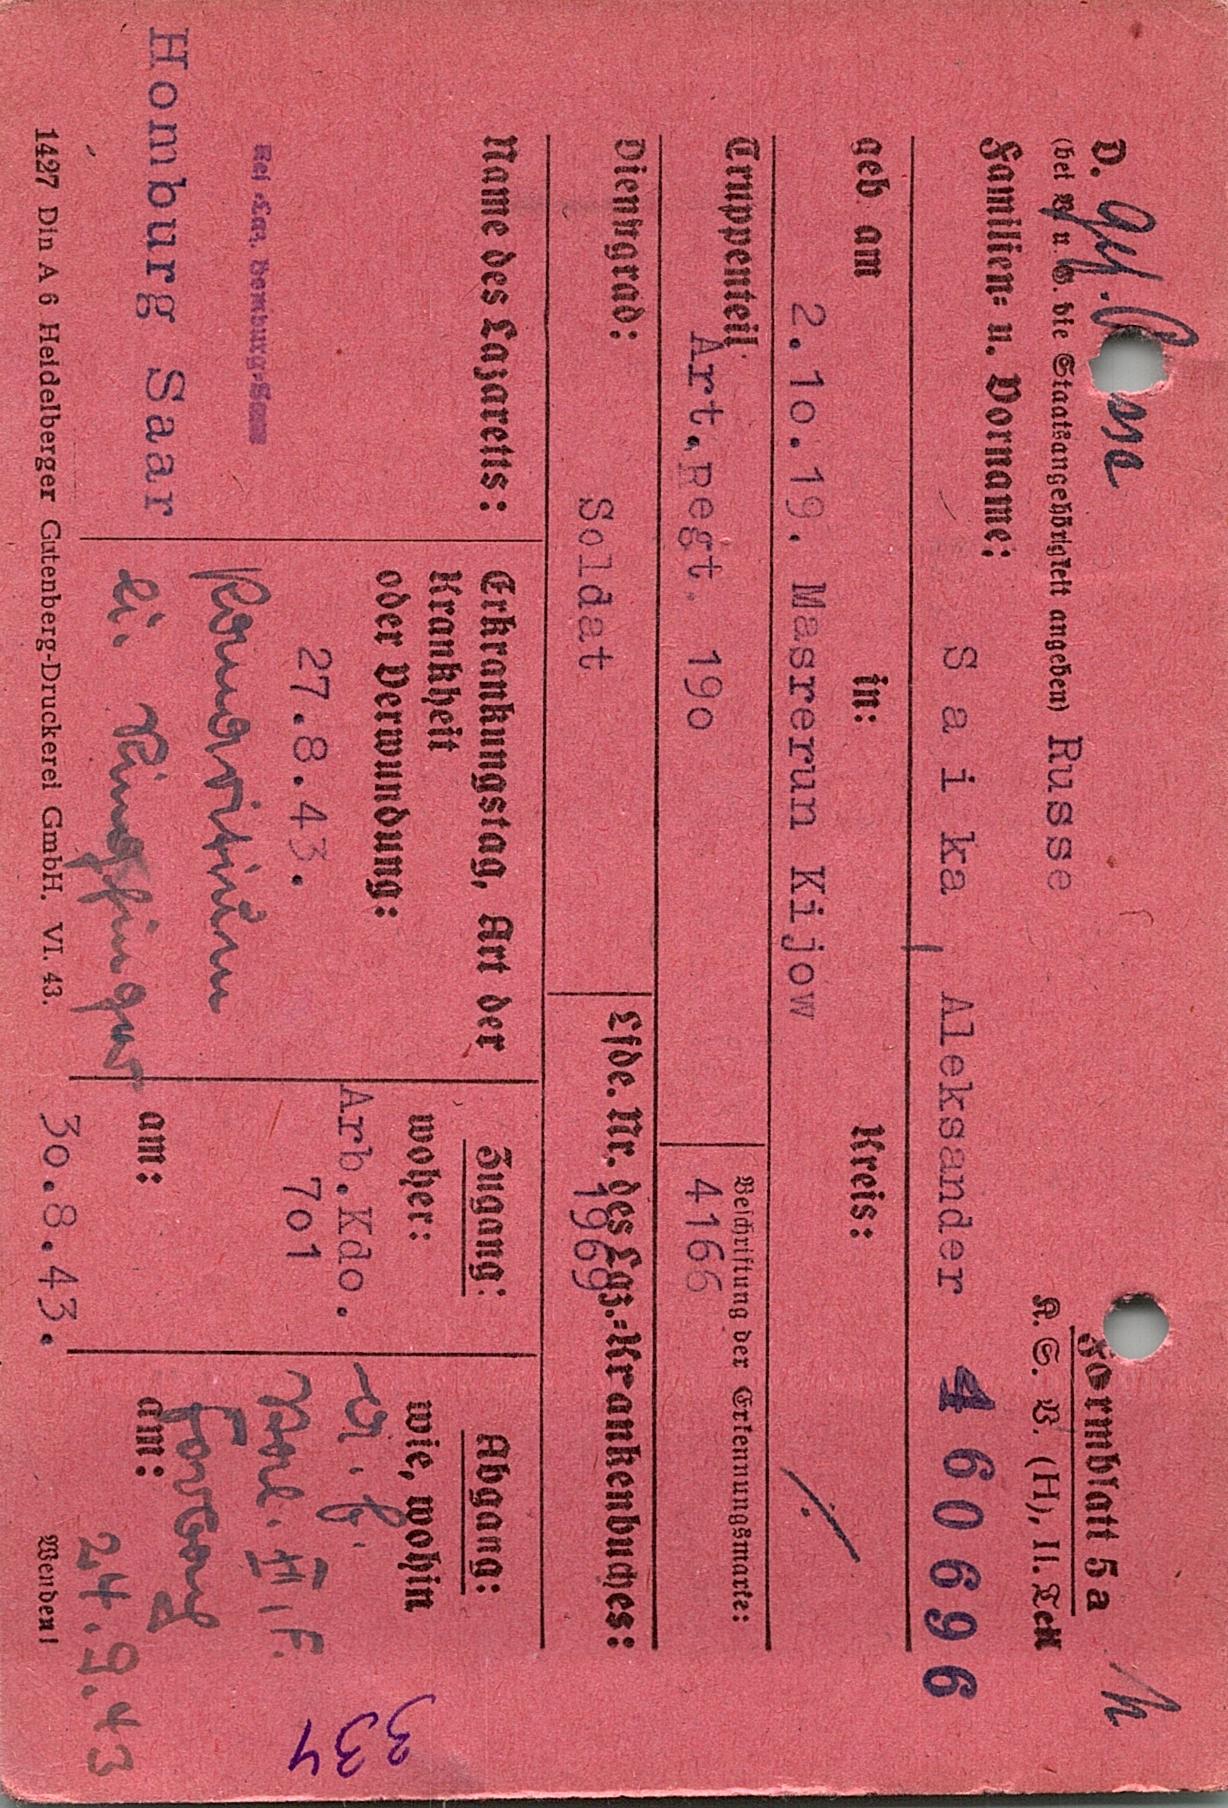 Formblatt 5a
K. S. V. (H), II. Teil
D.
(bei P. u. G. die Staatsangehörigkeit angeben) Russe
Familien- u. Vorname:
Saika, Aleksander 460696
geb am in: Kreis:
2.1o.19. Masrerun Kijow
Truppenteil Art.Regt. 19o
Beschriftung der Erkennungsmarke:
4166
Dienstgrad: Soldat
Lfde. Nr. des Laz.-Krankenbuches:
1969
Name des Lazaretts:
Res.-Laz. Homburg-Saar
Homburg Saar
Erkrankungstag, Art der
Krankheit
oder Verwundung:
27.8.43.
Panaritium
li. Ringfinger
Zugang:
woher:
Arb.Kdo.
7o1
am:
3o.8.43.
Abgang:
wie, wohin
XII F.
Forbach
am:
24.9.43
334
1427 Din A 6 Heidelberger Gutenberg-Druckerei GmbH. VI. 43.
Wenden!